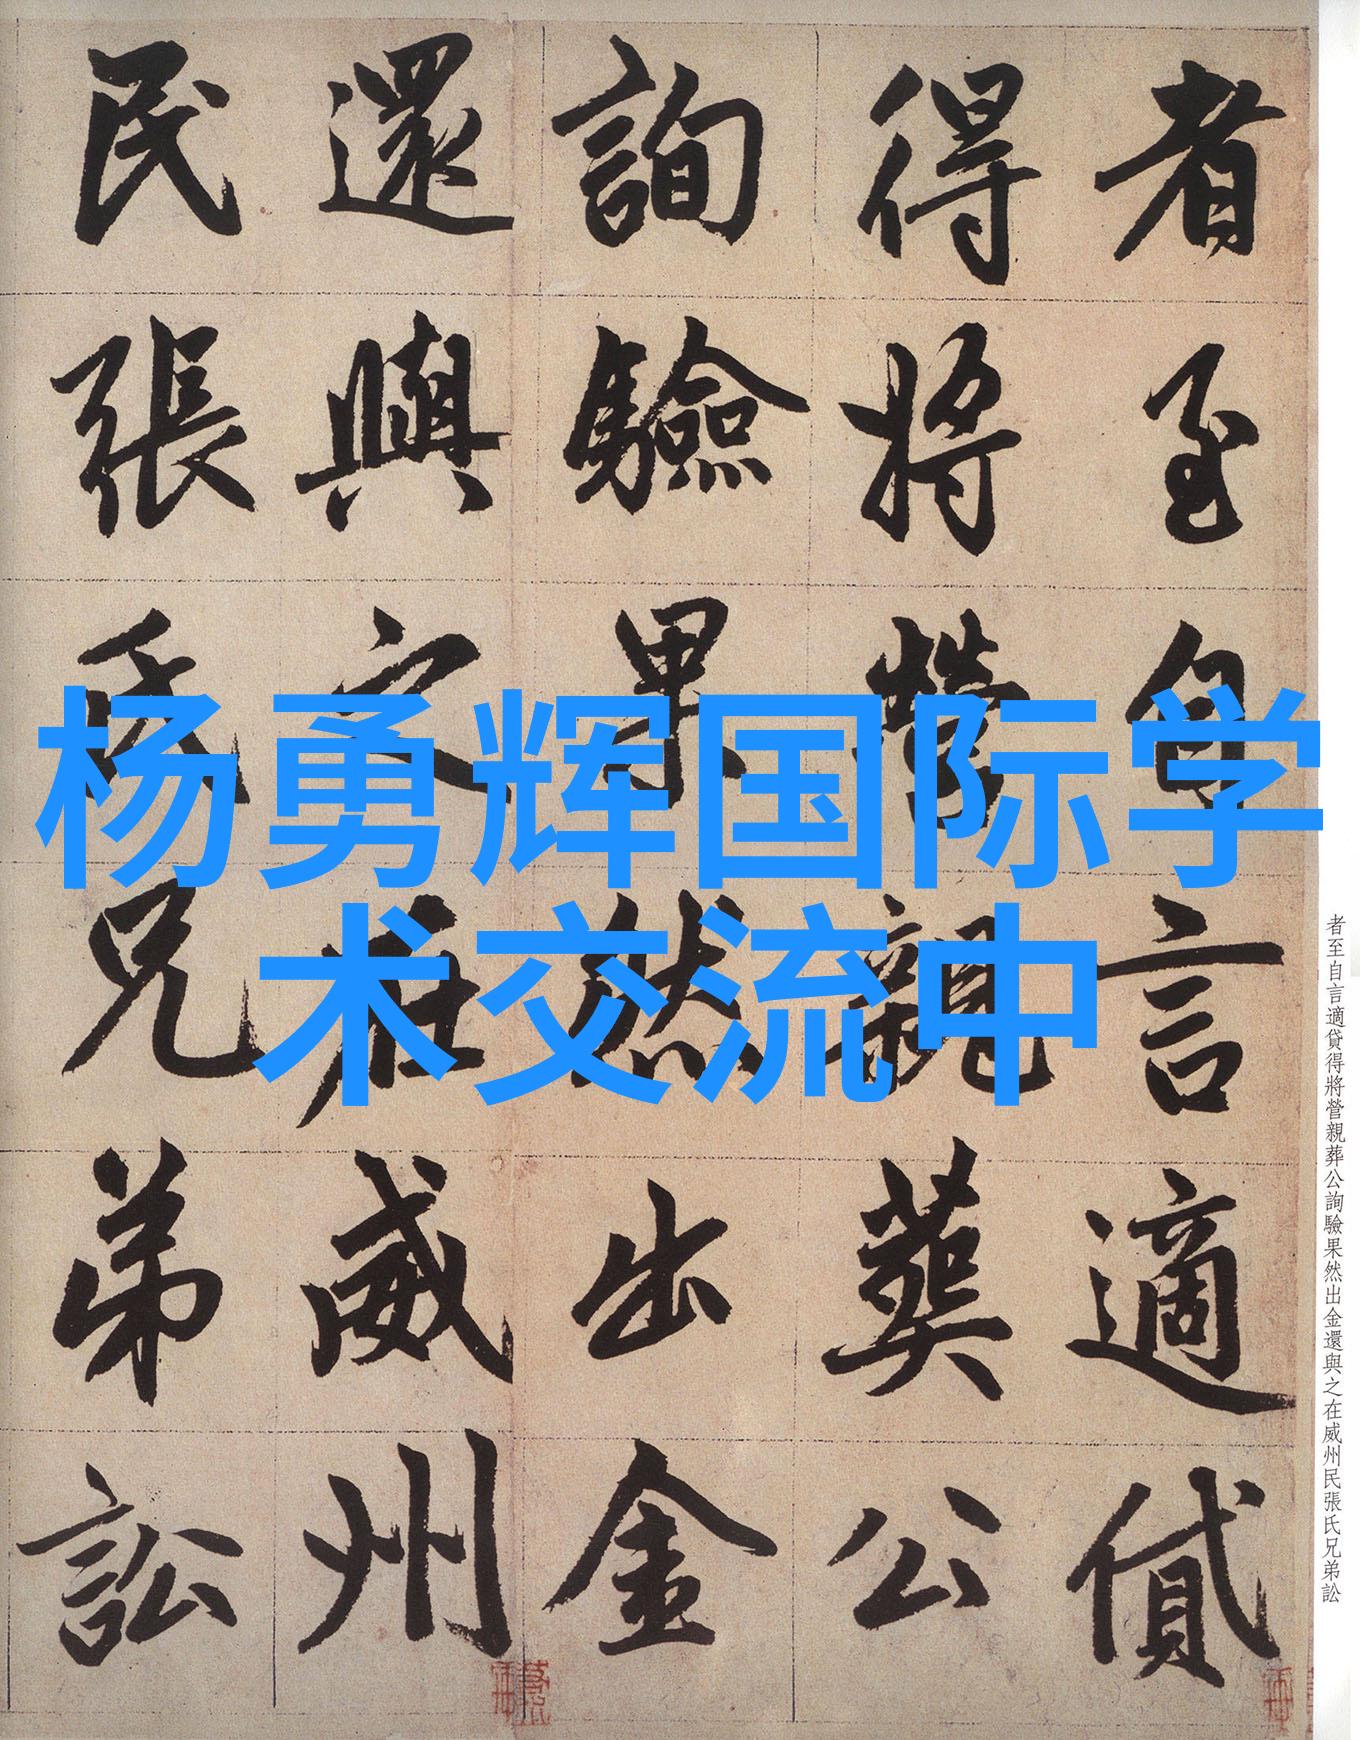 者至自言適貸
得將營親葬公
詢驗果然出金
還與之在威州
民張氏兄弟訟
杨勇辉国际学
术交流中
者至自言適貸得將營親葬公詢驗果然出金還與之在威州民張氏兄弟訟